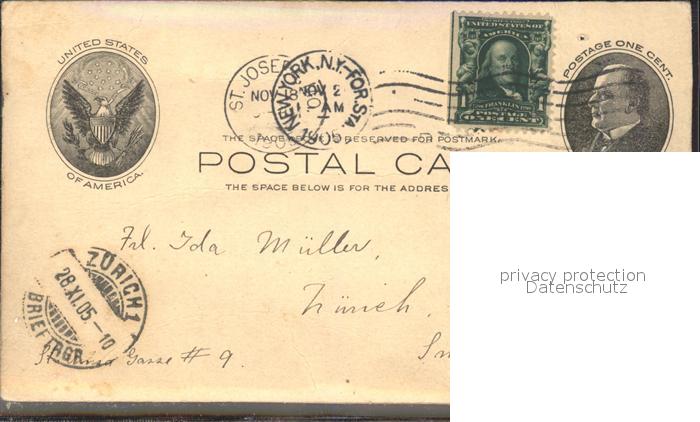 UNITED STATES
OF AMERICA.
ST. JOSE
NOV
NEW YORK, N.Y.-FOR. STA
NOV 2
AM
1905
UNITED STATES
OF AMERICA
1 FRANKLIN 1
POSTAGE
ONE CENT
POSTAGE ONE CENT.
THE SPACE RESERVED FOR POSTMARK
POSTAL CA
THE SPACE BELOW IS FOR THE ADDRES
Frl. Ida Müller,
Zürich,
Gasse # 9.
ZÜRICH 1
28.XI.05-10
BRIEFTRGR.
privacy protection
Datenschutz